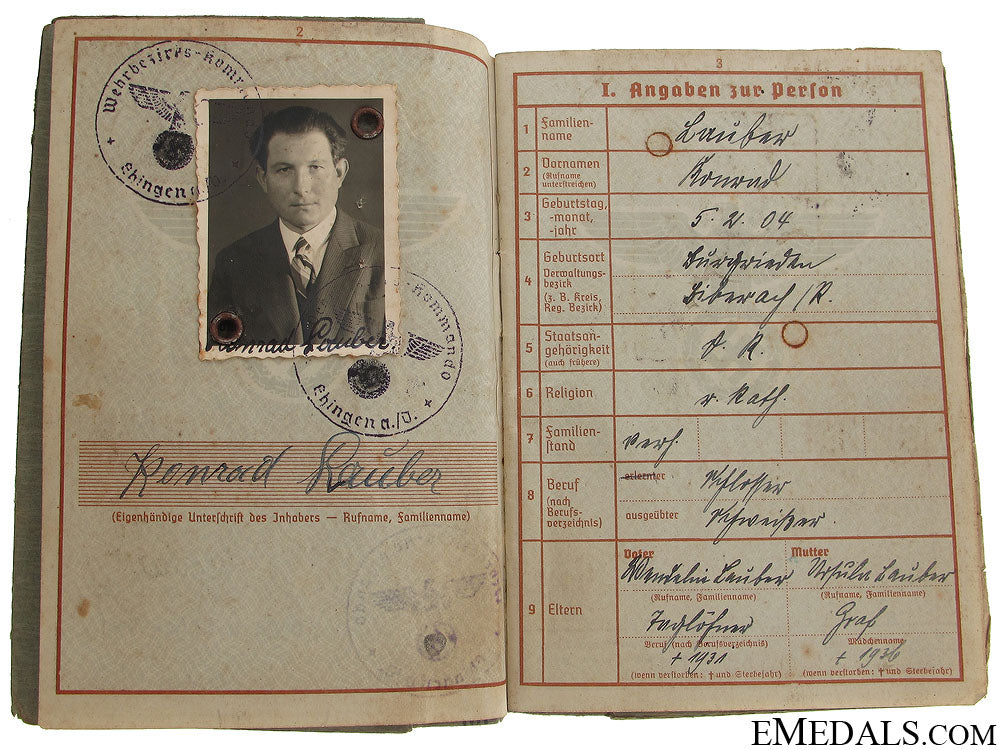 2
Wehrbezirks-Komm
Ehingen a./D.
Konrad Lauber
Kommando
Ehingen a./D.
Konrad Lauber
(Eigenhändige Unterschrift des Inhabers — Rufname, Familienname)
3
I. Angaben zur Person
1 Familien-
name
Lauber
2 Vornamen
(Rufname
unterstreichen)
Konrad
3 Geburtstag,
-monat,
-jahr
5. 2. 04
4 Geburtsort
Verwaltungs-
bezirk
(z. B. Kreis,
Reg. Bezirk)
Burgrieden
Biberach/R.
5 Staatsan-
gehörigkeit
(auch frühere)
D. R.
6 Religion
r. kath.
7 Familien-
stand
verh.
8 Beruf
(nach
Berufs-
verzeichnis)
erlernter
Schlosser
ausgeübter
Schweißer.
9 Eltern
Vater
Wendelin Lauber
(Rufname, Familienname)
Taglöhner
Beruf (nach Berufsverzeichnis)
+ 1931
(wenn verstorben: † und Sterbejahr)
Mutter
Ursula Lauber
(Rufname, Familienname)
Graf
Mädchenname
+ 1936
(wenn verstorben: † und Sterbejahr)
EMEDALS.COM